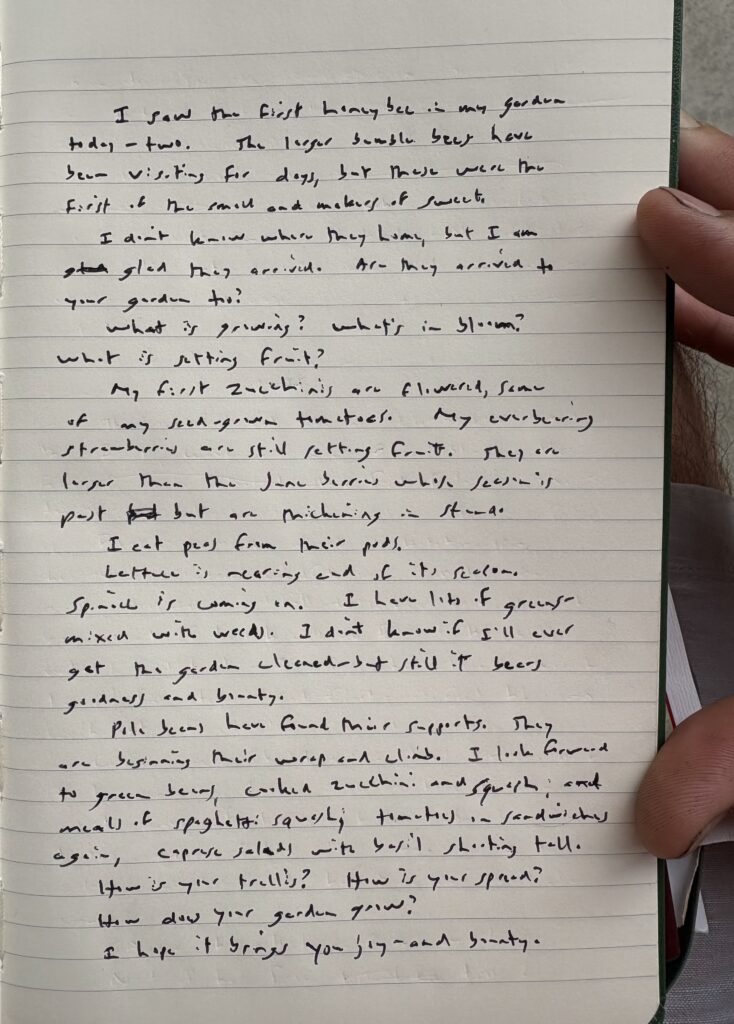 I saw the first honeybee in my garden
today - two. The larger bumble bees have
been visiting for days, but these were the
first of the small and makers of sweet.
I don't know where they home, but I am
glad they arrived. Are they arrived to
your garden too?
What is growing? What's in bloom?
What is setting fruit?
My first zucchinis are flowered, some
of my seed-grown tomatoes. My everbearing
strawberries are still setting fruit. They are
larger than the June berries whose season is
past but are thickening in stand.
I eat peas from their pods.
Lettuce is nearing end of its season.
Spinach is coming on. I have lots of greens-
mixed with weeds. I don't know if I'll ever
get the garden cleaned-but still it bears
goodness and bounty.
Pole beans have found their supports. They
are beginning their wrap and climb. I look forward
to green beans, cooked zucchini and squash; and
meals of spaghetti squash; tomatoes in sandwiches
again, caprese salads with basil shooting tall.
How is your trellis? How is your spread?
How does your garden grow?
I hope it brings you joy-and bounty.